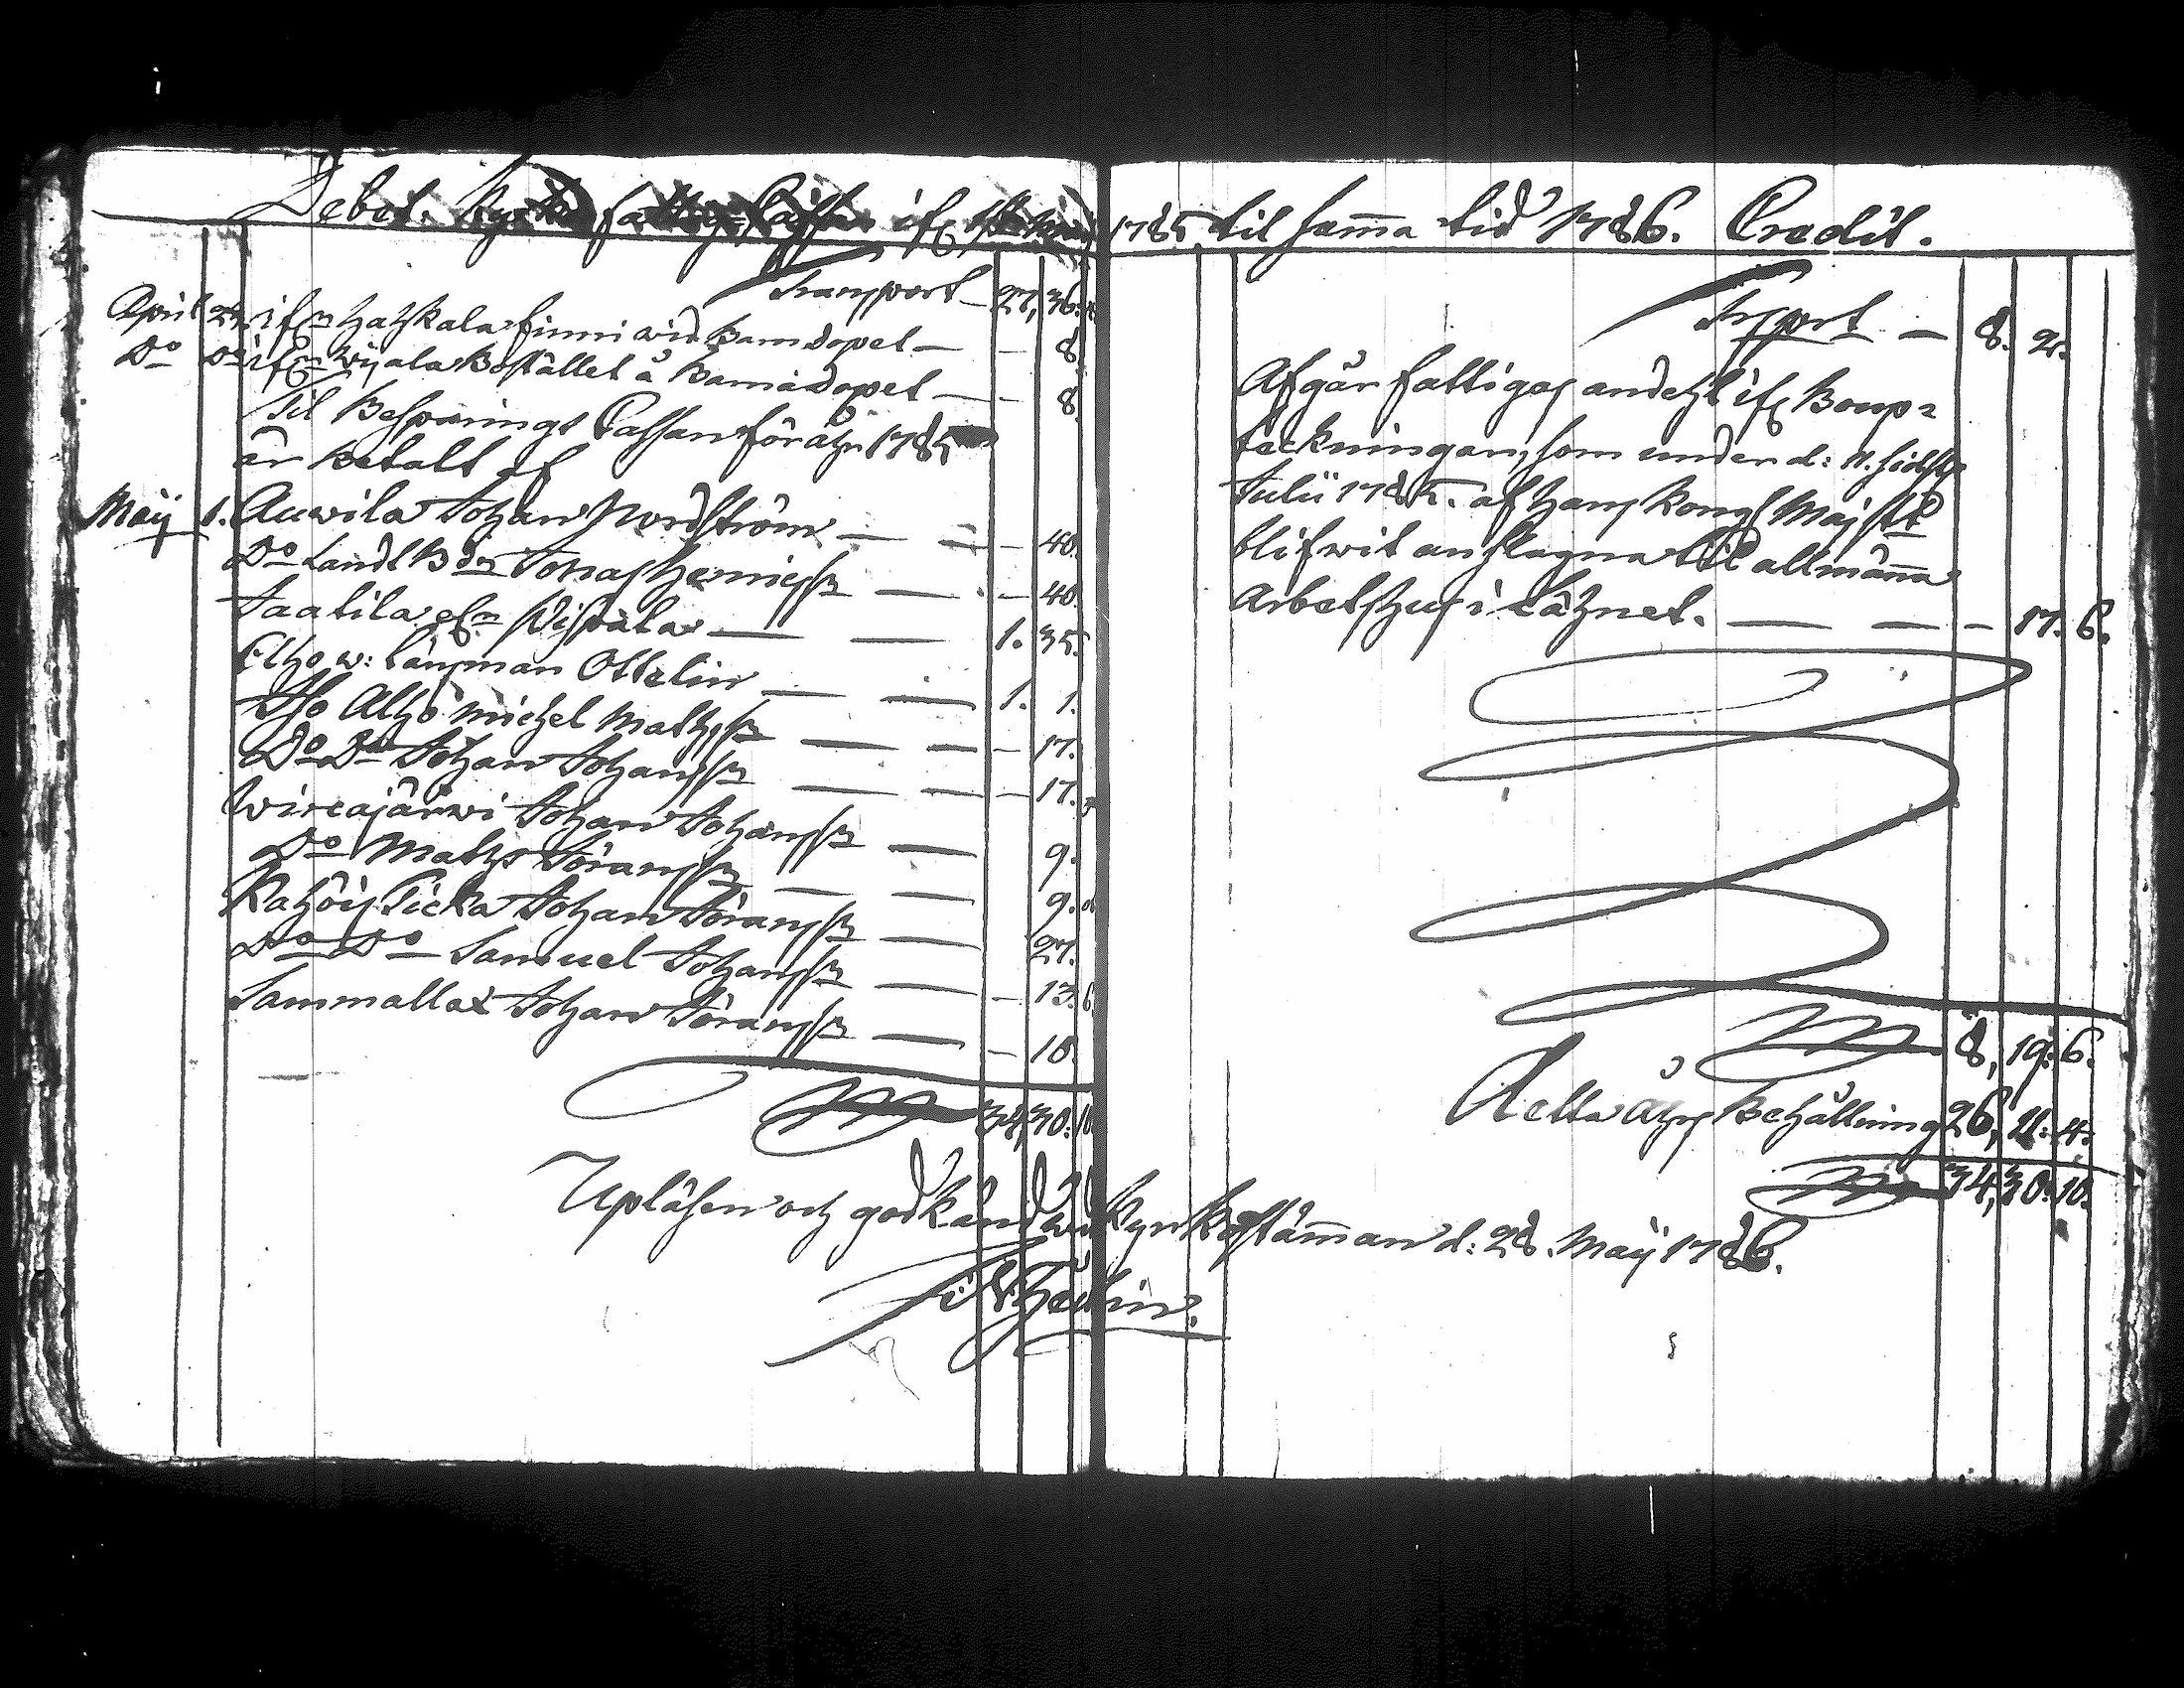 Debet. fattig-Cassan ifr. 1785 til samma tid 1786. Credit.
Transport — 27, 36.
April 24. ifrn Hahkala finni wid Barndopet — — 8.
Do Do ifrn Wijala Bostället å Barnadopet — — 8.
Til Besparings Cassan för åhr 1785
är betalt af
Maij 1. Auwila Johan Nordström — — 40.
Do Landtb. Jonas — — 40.
Taatila efn Pispala — — 1. 35.
Alho w: Länsman Ottelin — — 1. 1.
Iso Alho Michel Mathss — — 17.
Do Do Johan Johanss — — 17.
Wircajärwi Johan Johanss — 9.
Do Mathz Göranss — — 9.
Rahoij Picka Johan Göranss — 27.
Do Do Samuel Johanss — — 13. 6.
Sammallax Johan Göranss — — 10.
34, 30. 10.
Trsport — 8. 2.
Afgår fattigas andehl ifr Boup-
teckningar, som under d: 11. sidstl.
Julii 1785. af Hans Kongl Maj:tt
blifwit anslagna til allmänna
Arbetshus i Lähnet. — — — 17. 6.
8, 19. 6.
Retta Åhrs Behållning 26, 11. 4.
34, 30. 10.
Upläsen och godkänd wid Kyrkostämman d: 28. Maij 1786.